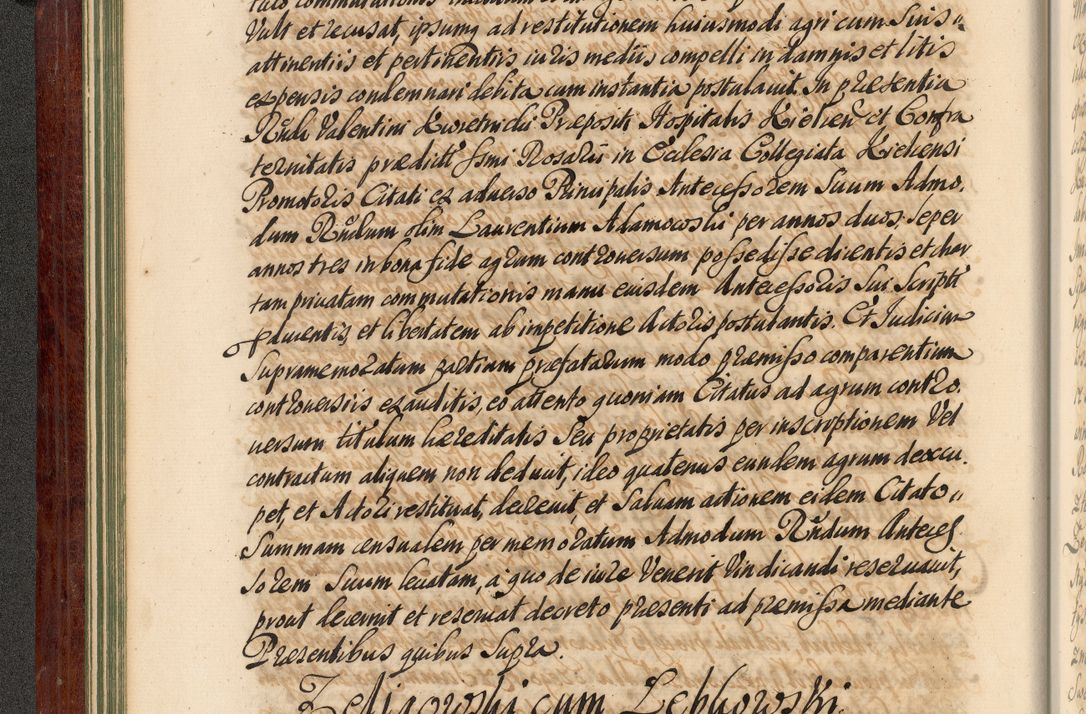 Vult et recusat, ipsumq ad restitutionem huiusmodi agri cum Suis
attinentiis et pertinentiis iuris mediis compelli in damnis et litis
expensis condemnari debita cum instantia postulauit. In præsentia
Rndi Valentini Kwietnicki Præpositi Hospitalis Kielcen et Confra
ternitatis prædictæ Ssmi Rosarii in Ecclesia Collegiata Kielcensi
Promotoris Citati ex aduerso Principalis Antecessorem Suum Admo,
dum Rndum olim Laurentium Adamowski per annos duos, Seper
annos tres in bona fide agrum controuersum possedisse dicentis et char
tam priuatam commutationis manu eiusdem Antecessoris Sui Scriptā
adducentis, et libertatem ab impetitione Actoris postulantis. Et Iudicium
Supramemoratum partium præfatarum modo præmisso comparentium
controuersiis exauditis, eo attento quoniam Citatus ad agrum contro,
uersum titulum hæreditatis Seu proprietatis per inscriptionem Vel
contractum aliquem non deduxit, ideo quatenus eundem agrum deoccu,
pet, et Actori restituat, decreuit, et Saluam actionem eidem Citato
Summam censualem per memoratum Admodum Rndum Anteces
sorem Suum leuatam, a quo de iure Venerit Vindicandi reseruauit,
prout decernit et reseruat decreto præsenti ad præmissa mediante
Præsentibus quibus Supra.
cum Lebkowski.